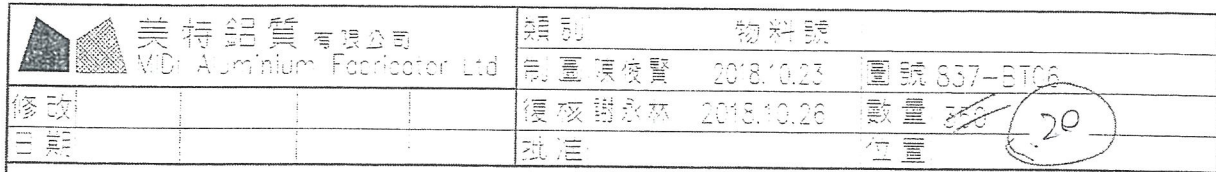 美特鋁質有限公司
Aluminium Fabricator Ltd
類別 物料號
制圖 陳俊賢 2018.10.23 圖號 837-BT06
修改 復核 謝永林 2018.10.26 數量 350 20
日期 批准 位置